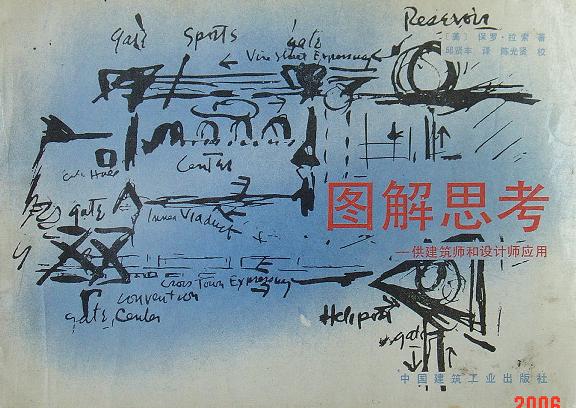 Reservoir
gate Sports gate
〔美〕 保罗·拉索 著
邱贤丰 译 陈光贤 校
Vine Street Expressway
Center
图解思考
gate
Inner Viaduct
—供建筑师和设计师应用
Cross Town Expressway
convention
gate, Center
Heliport
gate
中国建筑工业出版社
2006